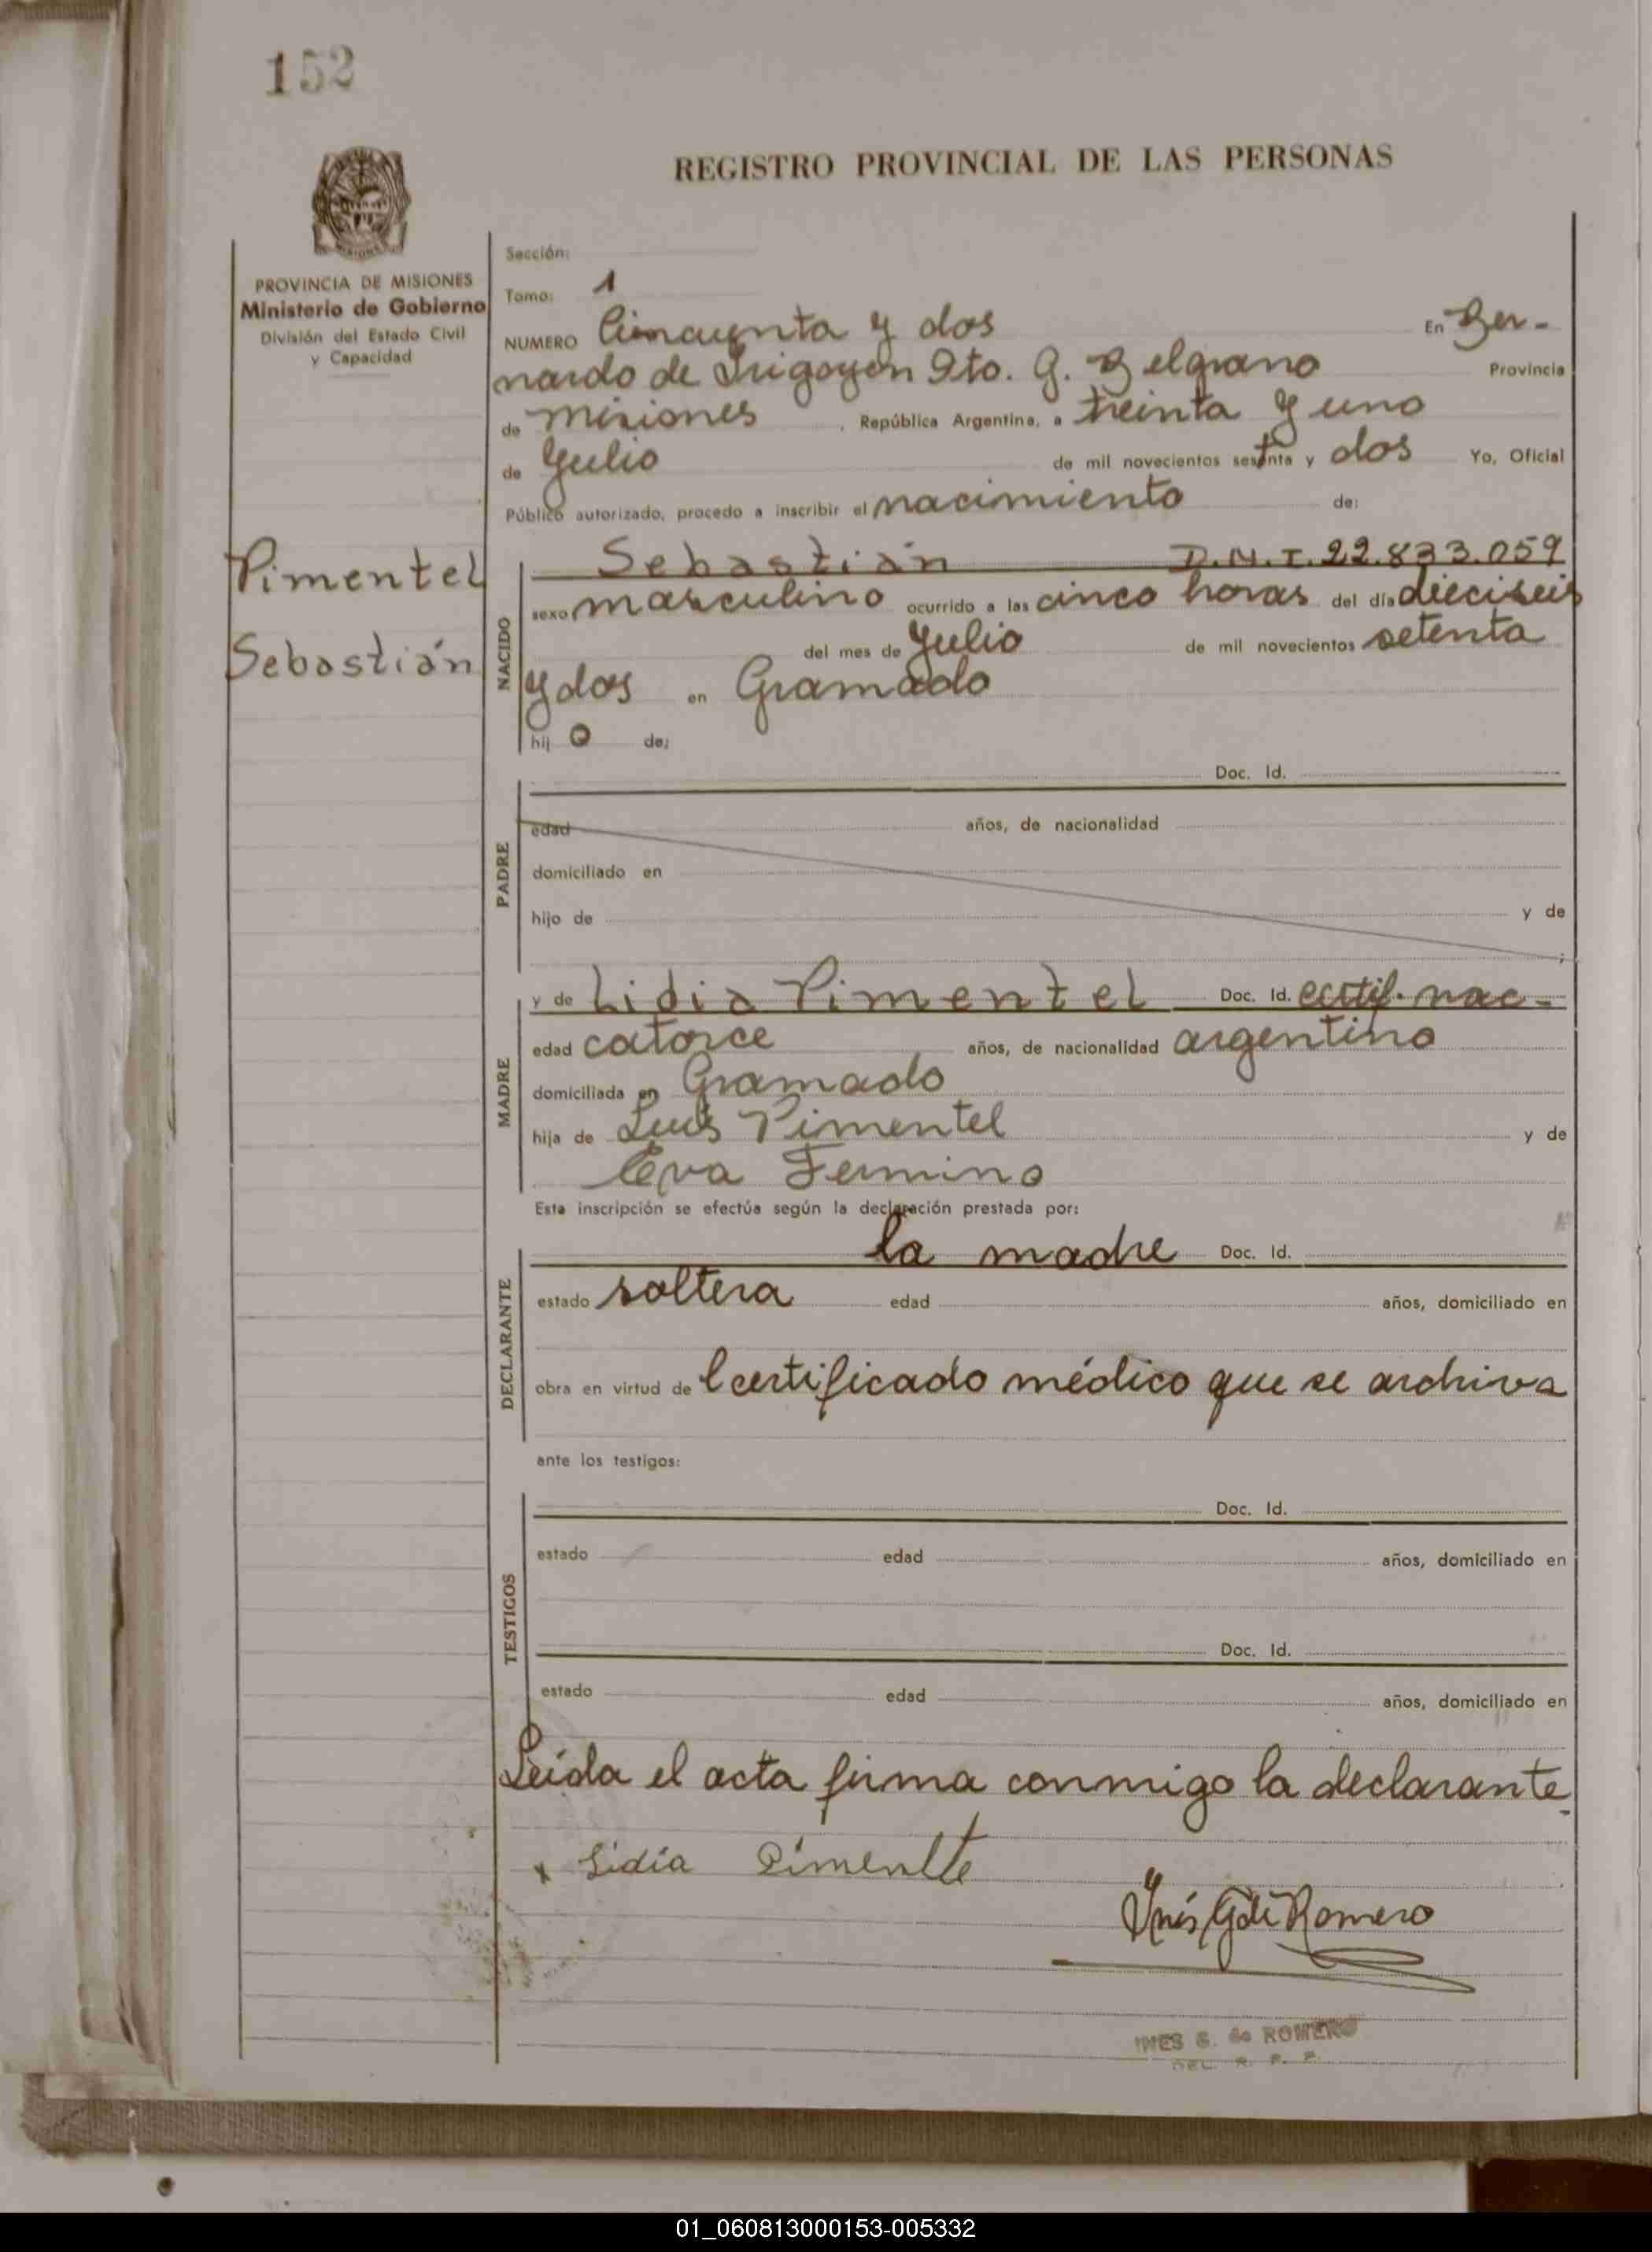 152
REGISTRO PROVINCIAL DE LAS PERSONAS
PROVINCIA DE MISIONES
Ministerio de Gobierno
División del Estado Civil
y Capacidad
Sección:
Tomo: 1
NUMERO Cincuenta y dos En Ber-
nardo de Irigoyen Dto. G. Belgrano Provincia
de Misiones , República Argentina, a treinta y uno
de Julio de mil novecientos setenta y dos Yo, Oficial
Público autorizado, procedo a inscribir el nacimiento de:
Pimentel
Sebastián
NACIDO
Sebastián D.N.I. 22.833.059
sexo masculino ocurrido a las cinco horas del día dieciseis
del mes de Julio de mil novecientos setenta
y dos en Gramado
hij o de:
PADRE
Doc. Id.
edad años, de nacionalidad
domiciliado en
hijo de y de
;
MADRE
y de Lidia Pimentel Doc. Id. certif. nac-
edad catorce años, de nacionalidad argentina
domiciliada en Gramado
hija de Luis Pimentel y de
Eva Fermino
Esta inscripción se efectúa según la declaración prestada por:
DECLARANTE
la madre Doc. Id.
estado soltera edad años, domiciliado en
obra en virtud de Certificado médico que se archiva
ante los testigos:
TESTIGOS
Doc. Id.
estado edad años, domiciliado en
Doc. Id.
estado edad años, domiciliado en
Leída el acta firma conmigo la declarante.
x Lidia Pimentle
Inés G de Romero
INES G. de ROMERO
DEL. R. P. P.
01_060813000153-005332